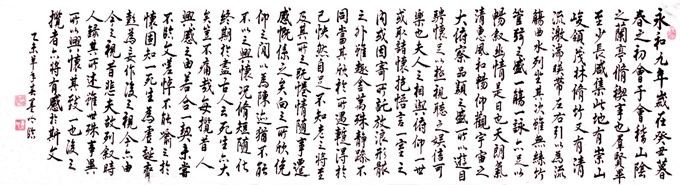 永和九年歲在癸丑暮
春之初會于會稽山陰
之蘭亭脩禊事也羣賢畢
至少長咸集此地有崇山
峻領茂林脩竹又有清
流激湍暎帶左右引以為流
觴曲水列坐其次雖無絲竹
管弦之盛一觴一詠亦足以
暢叙幽情是日也天朗氣
清惠風和暢仰觀宇宙之
大俯察品類之盛所以遊目
騁懷足以極視聽之娛信可
樂也夫人之相與俯仰一世
或取諸懷抱悟言一室之
內或因寄所託放浪形骸
之外雖趣舍萬殊靜躁不
同當其欣於所遇暫得於
己快然自足不知老之將至
及其所之既惓情隨事遷
感慨係之矣向之所欣俛
仰之間以為陳迹猶不能
不以之興懷況脩短隨化
終期於盡古人云死生亦大
矣豈不痛哉每攬昔人
興感之由若合一契未嘗
不臨文嗟悼不能喻之於
懷固知一死生為虛誕齊
彭殤為妄作後之視今亦由
今之視昔悲夫故列叙時
人錄其所述雖世殊事異
所以興懷其致一也後之
攬者亦將有感於斯文
乙未年